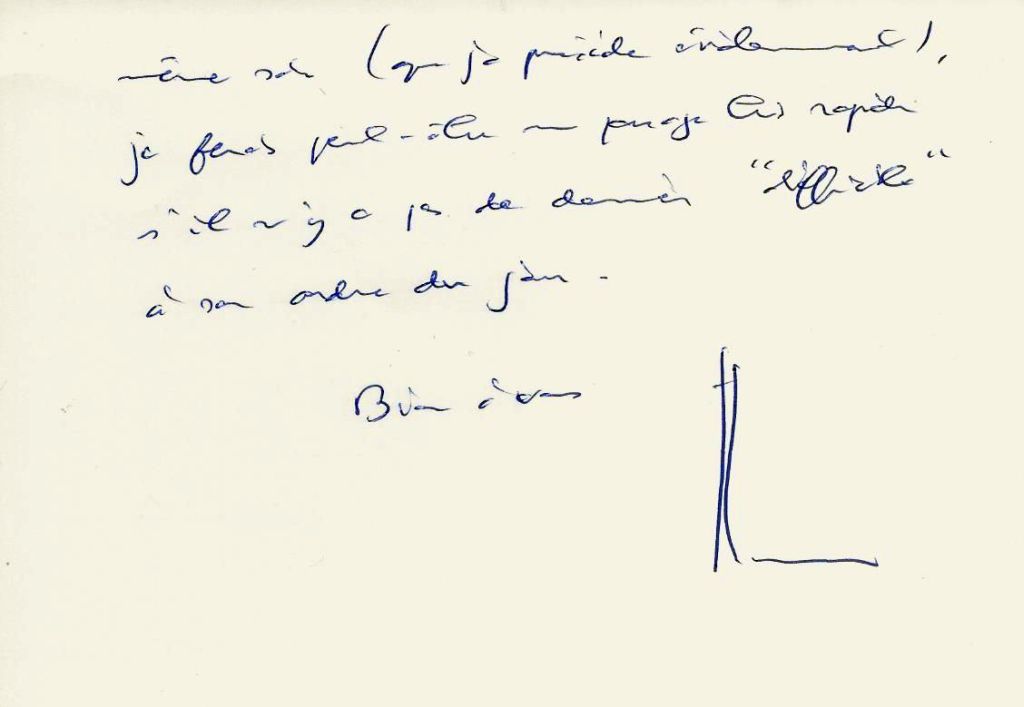 même soir (que je préside évidemment),
je ferais peut-être un passage très rapide
s'il n'y a pas de dossier "difficile"
à son ordre du jour.
Bien à vous